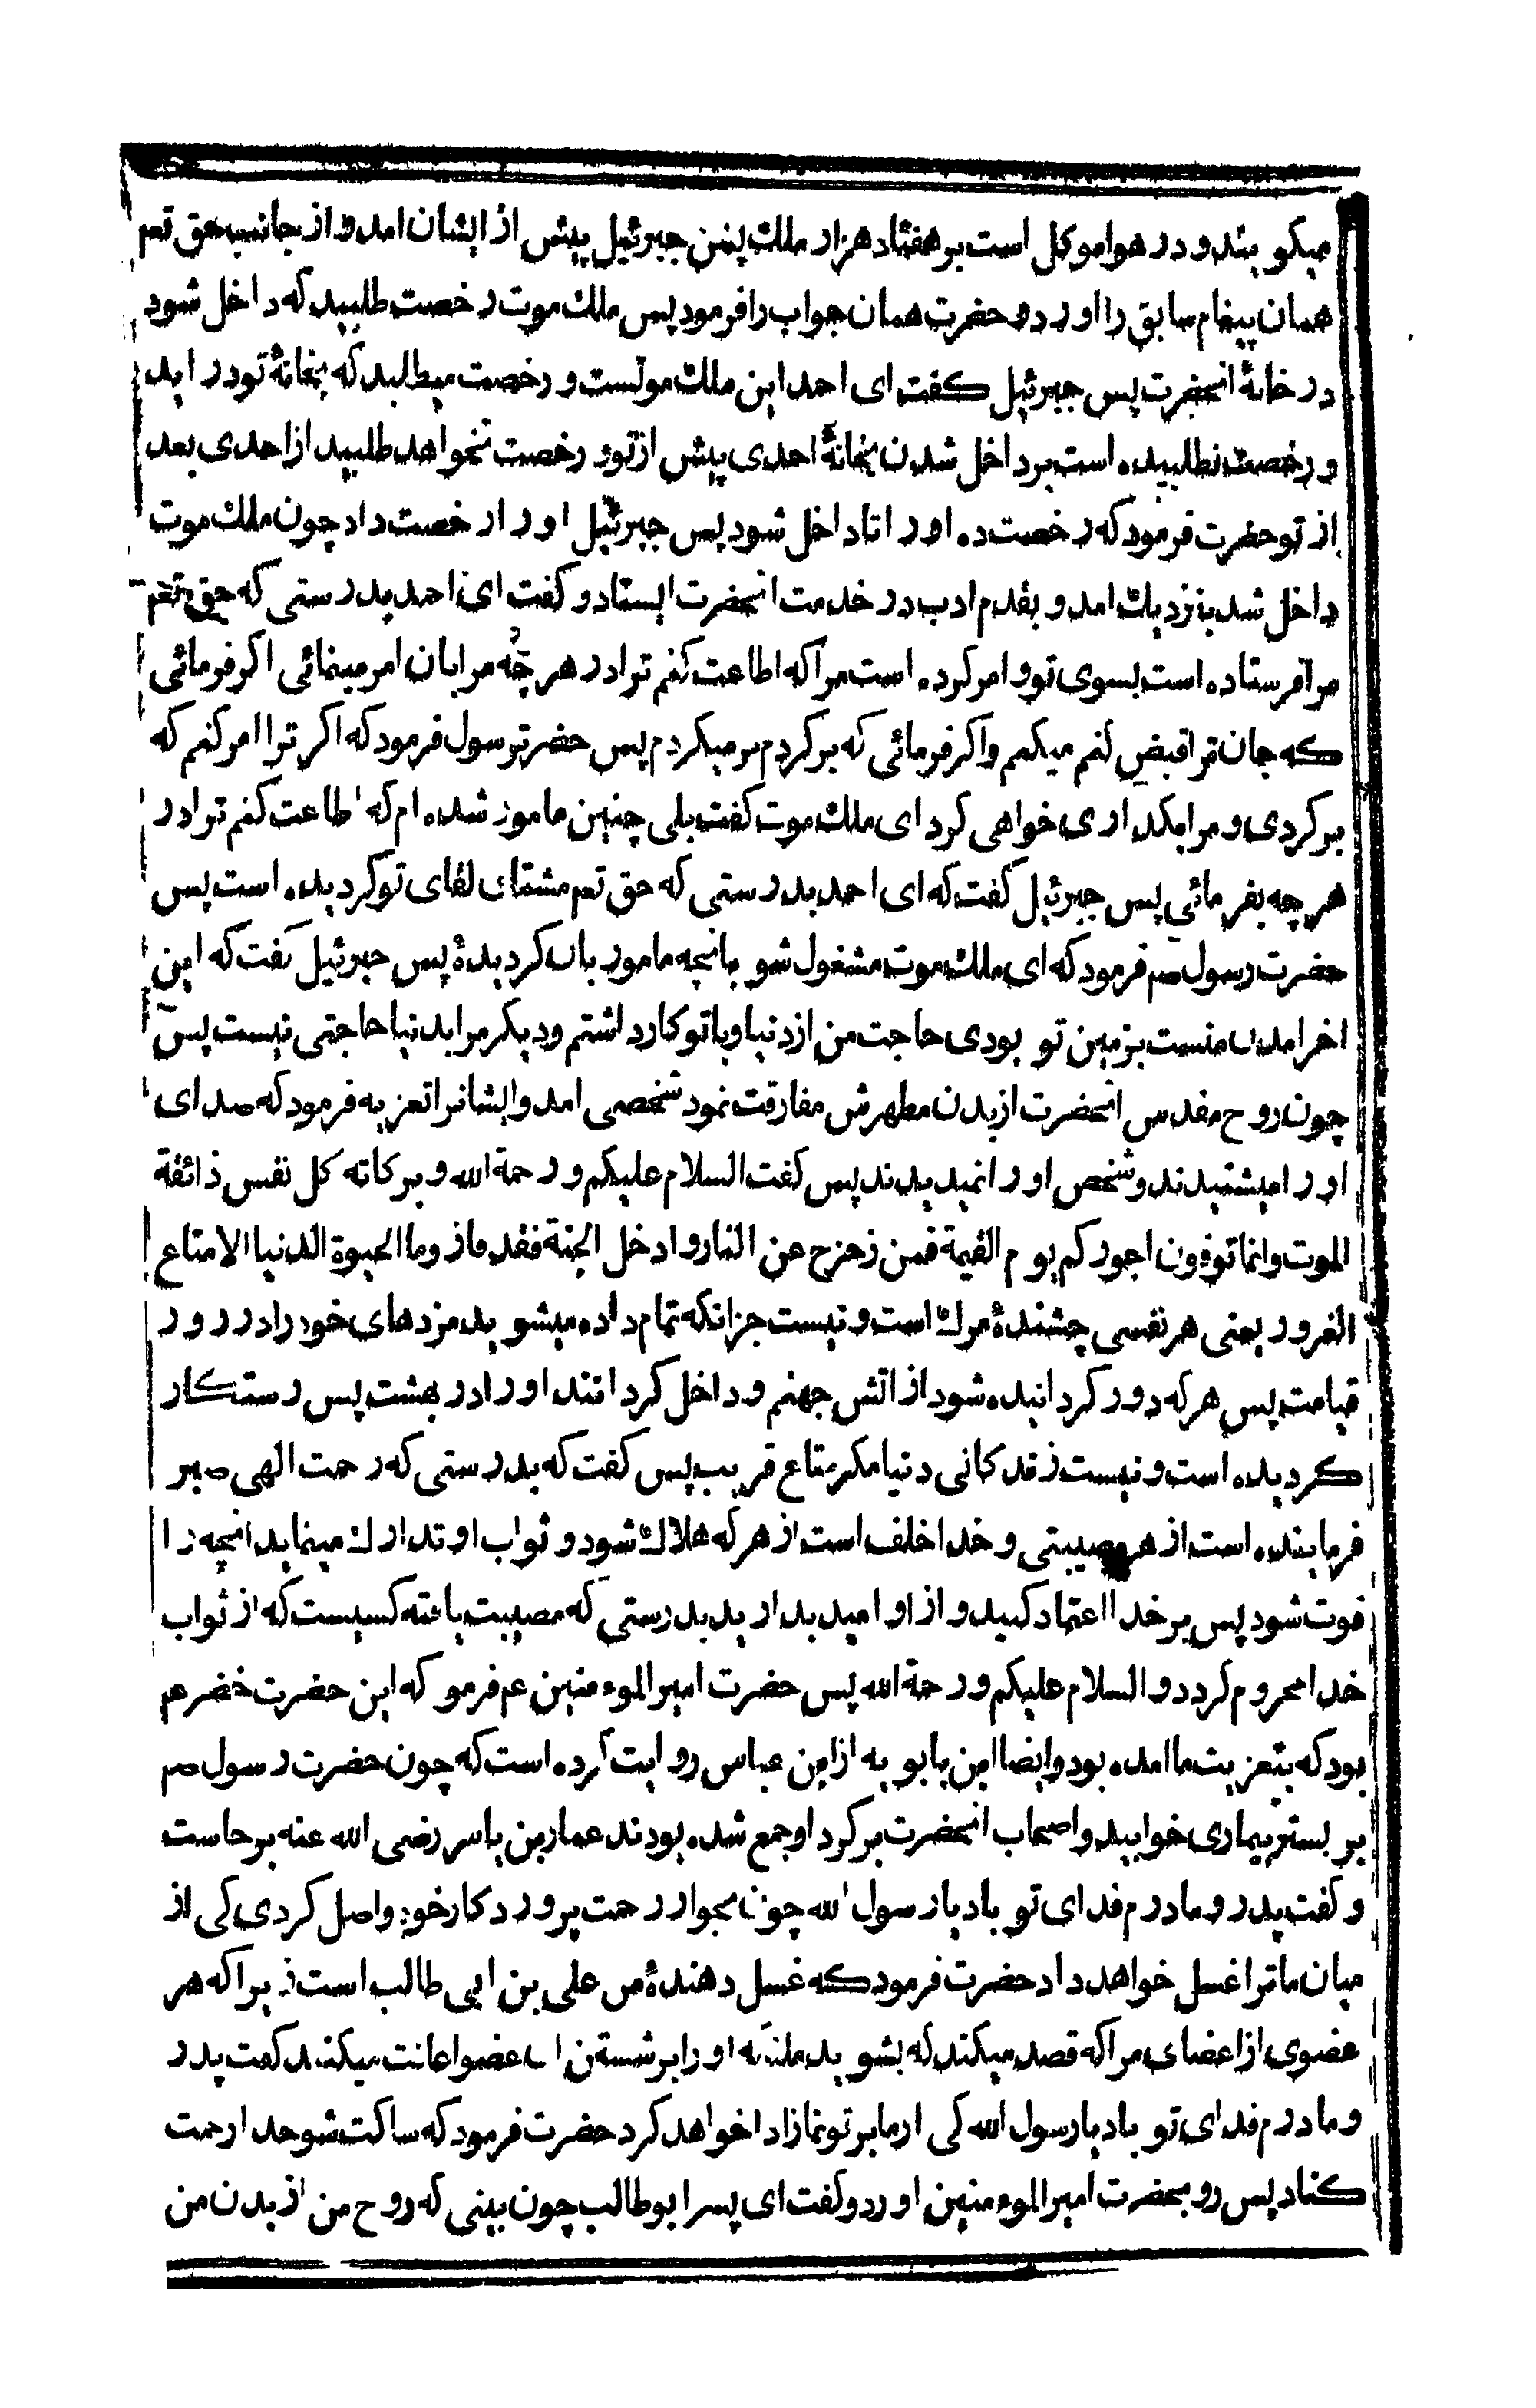 میکویند و در هوا موکل است بر هفتاد هزار ملک پس جبرئیل پیش از ایشان امد و از جانب حق تعم
همان پیغام سابق را اورد و حضرت همان جواب را فرمود پس ملک موت رخصت طلبید که داخل شود
در خانۀ انحضرت پس جبرئیل کفت ای احمد این ملک موتست و رخصت میطلبد که بخانۀ تو در اید
و رخصت نطلبیده است بر داخل شدن بخانۀ احدی پیش از تو و رخصت نخواهد طلبید از احدی بعد
از تو حضرت فرمود که رخصت ده او را تا داخل شود پس جبرئیل او را رخصت داد چون ملک موت
داخل شد بنزدیک امد و بقدم ادب در خدمت انحضرت ایستاد و کفت ای احمد بدرستی که حق تعم
مرا فرستاده است بسوی تو و امر کرده است مرا که اطاعت کنم ترا در هر چه مرا بان امر مینمائی اکر فرمائی
که جان ترا قبض کنم میکنم و اکر فرمائی که برکردم برمیکردم پس حضرت رسول فرمود که اکر ترا امر کنم که
برکردی و مرا بکذاری خواهی کرد ای ملک موت کفت بلی چنین مامور شده ام که اطاعت کنم ترا در
هر چه بفرمائی پس جبرئیل کفت که ای احمد بدرستی که حق تعم مشتاق لقای تو کردیده است پس
حضرت رسول صم فرمود که ای ملک موت مشغول شو بانچه مامور بان کردیدۀ پس جبرئیل کفت که این
اخر امدن منست بزمین تو بودی حاجت من از دنیا و با تو کار داشتم و دیکر مرا بدنیا حاجتی نیست پس
چون روح مقدس انحضرت از بدن مطهرش مفارقت نمود شخصی امد و ایشانرا تعزیه فرمود که صدای
او را میشنیدند و شخص او را نمیدیدند پس کفت السلام علیکم و رحمة الله و برکاته کل نفس ذائقة
الموت وانما توفون اجورکم یوم القیمة فمن زحزح عن النار و ادخل الجنة فقد فاز وما الحیوة الدنیا الا متاع
الغرور یعنی هر نفسی چشندۀ مرک است و نیست جز انکه تمام داده میشوید مزدهای خود را در روز
قیامت پس هر که دور کردانیده شود از اتش جهنم و داخل کردانند او را در بهشت پس رستکار
کردیده است و نیست زندکانی دنیا مکر متاع فریب پس کفت که بدرستی که رحمت الهی صبر
فرماینده است از هر مصیبتی و خدا خلف است از هر که هلاک شود و ثواب او تدارک مینماید انچه را
فوت شود پس بر خدا اعتماد کنید و از او امید بدارید بدرستی که مصیبت یافته کسیست که از ثواب
خدا محروم کردد والسلام علیکم و رحمة الله پس حضرت امیر الموءمنین عم فرمو که این حضرت خضر عم
بود که بتعزیت ما امده بود و ایضا ابن بابویه از ابن عباس روایت کرده است که چون حضرت رسول صم
بر بستر بیماری خوابید و اصحاب انحضرت بر کرد او جمع شده بودند عمار بن یاسر رضی الله عنه برخاست
و کفت پدر و مادرم فدای تو باد یا رسول الله چون بجوار رحمت پروردکار خود واصل کردی کی از
میان ما ترا غسل خواهد داد حضرت فرمود که غسل دهندۀ من علی بن ابی طالب است زیرا که هر
عضوی از اعضای مرا که قصد میکند که بشوید ملئکه او را بر شستن ان عضو اعانت میکنند کفت پدر
و مادرم فدای تو باد یا رسول الله کی از ما بر تو نماز ادا خواهد کرد حضرت فرمود که ساکت شو خدا رحمت
کناد پس رو بحضرت امیر الموءمنین اورد و کفت ای پسر ابو طالب چون بینی که روح من از بدن من